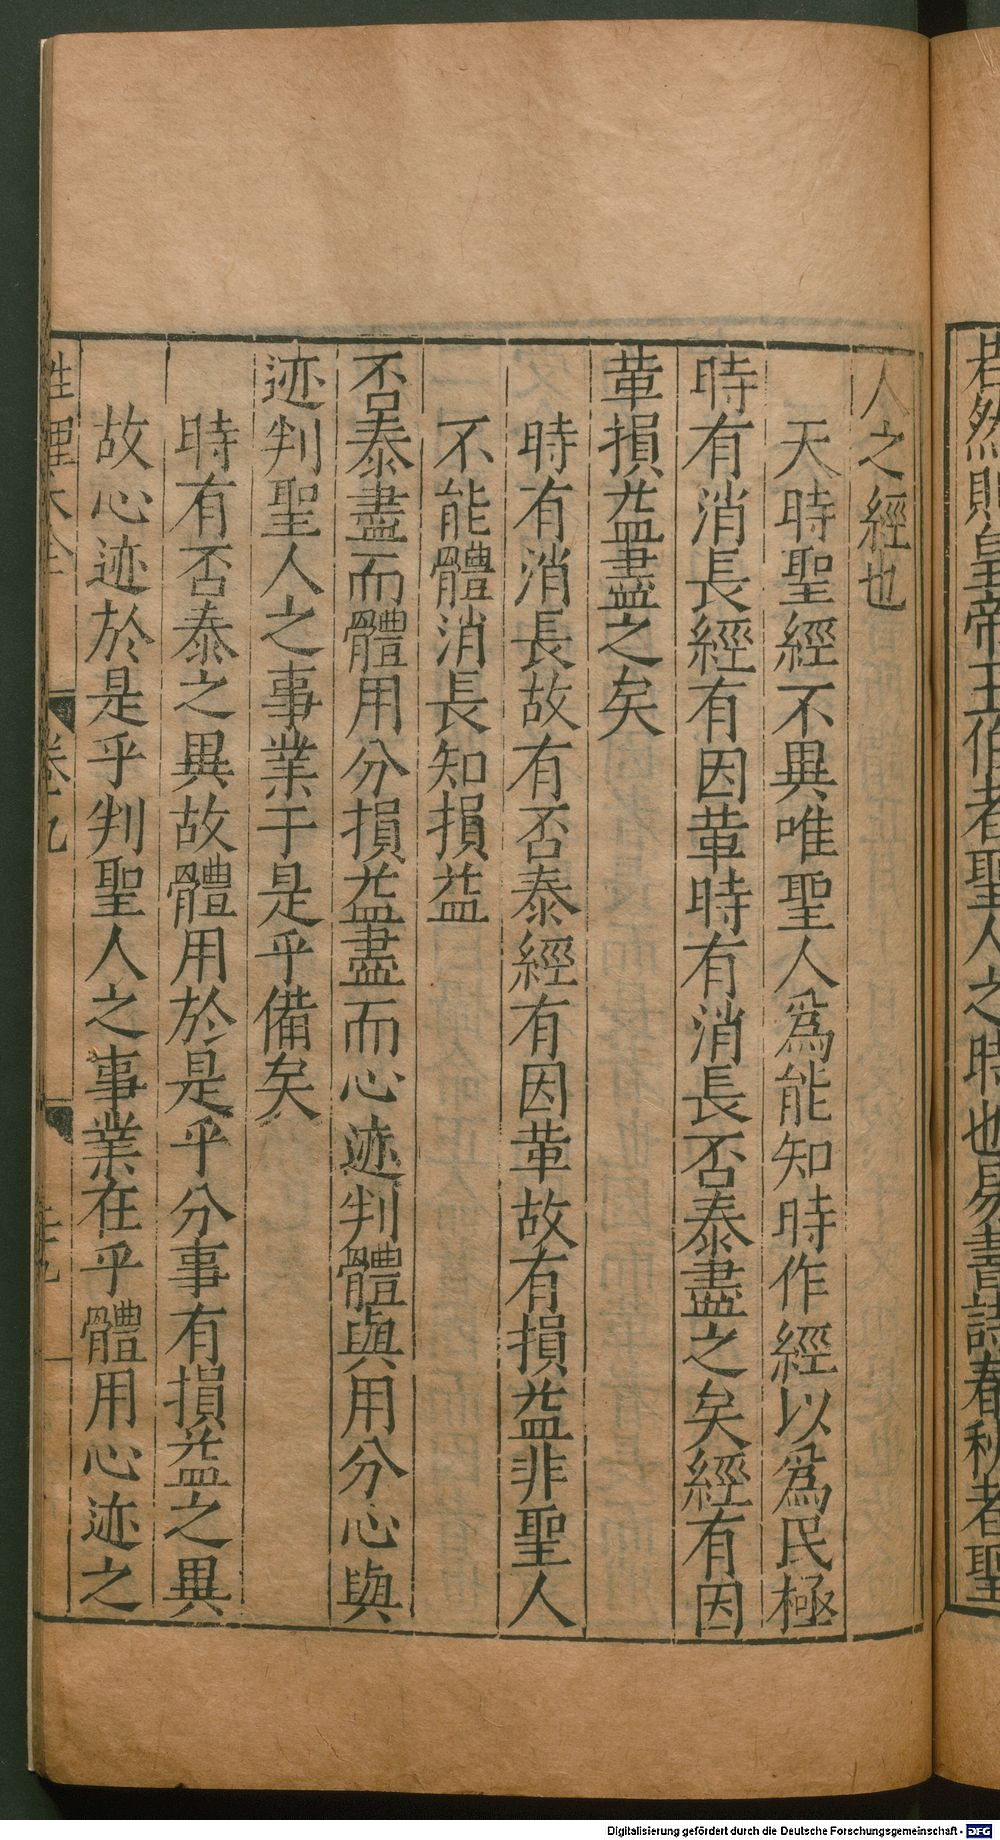 若然則皇帝王伯者聖人之時也易書詩春秋者聖
人之經也
天時聖經不異唯聖人爲能知時作經以爲民極
時有消長經有因革時有消長否泰盡之矣經有因
革損益盡之矣
時有消長故有否泰經有因革故有損益非聖人
不能體消長知損益
否泰盡而體用分損益盡而心迹判體與用分心與
迹判聖人之事業于是乎備矣
時有否泰之異故體用於是乎分事有損益之異
故心迹於是乎判聖人之事業在乎體用心迹之
性理大全 卷之九
Digitalisierung gefördert durch die Deutsche Forschungsgemeinschaft - DFG